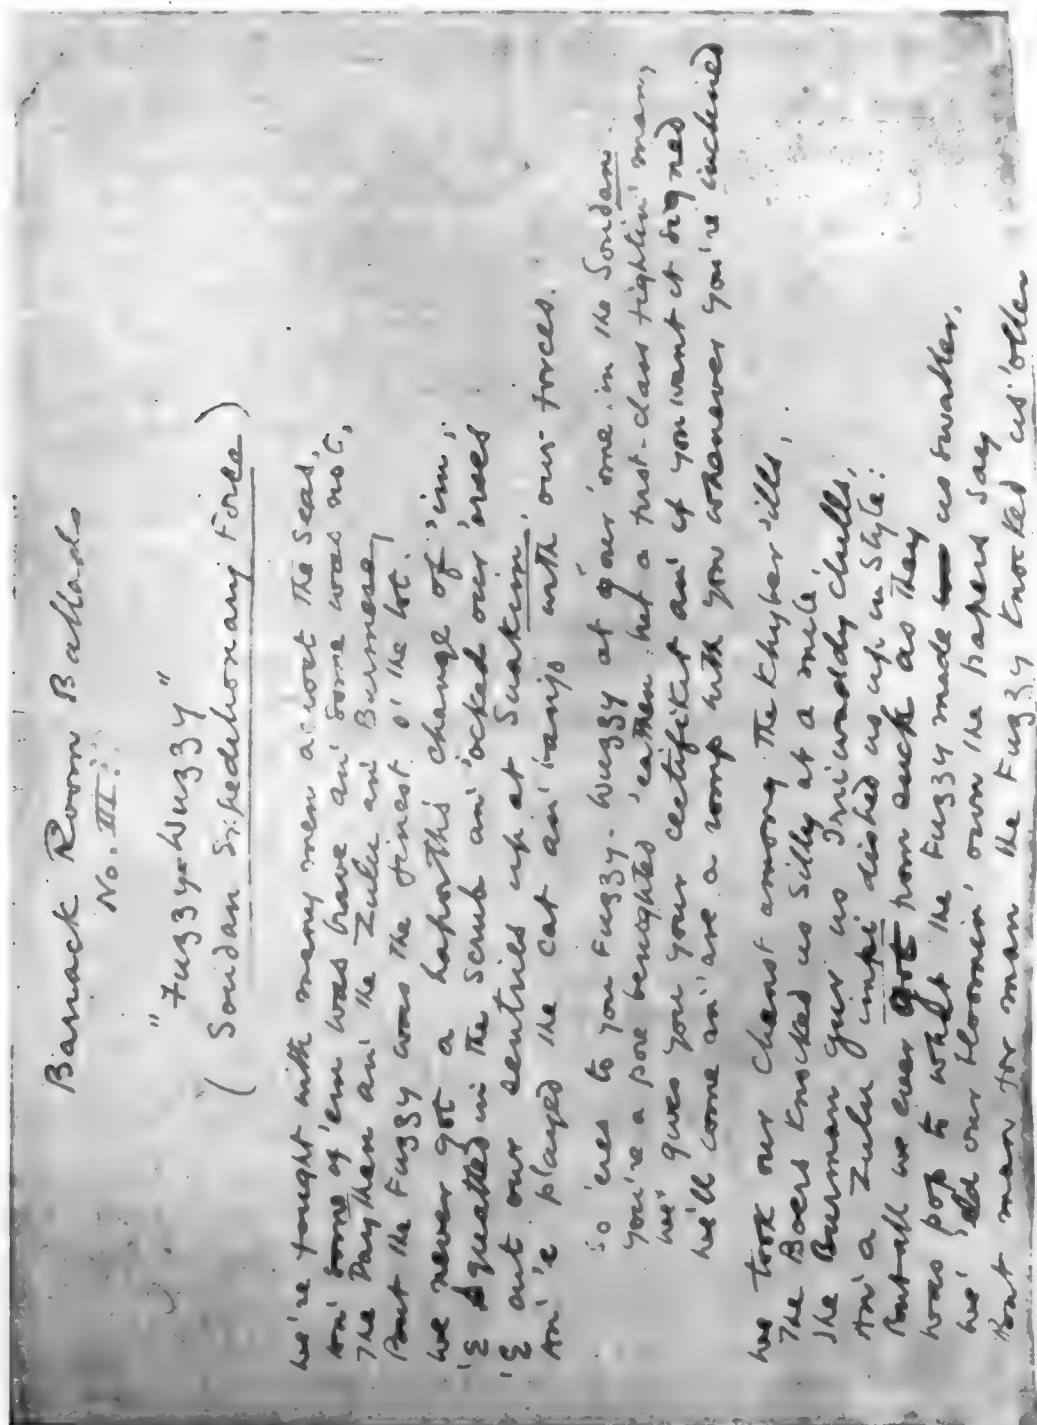 Barrack Room Ballads
No. III.
"Fuzzy-Wuzzy"
(Soudan Expeditionary Force)
We've fought with many men acrost the seas,
An' some of 'em was brave an' some was not,
The Paythan an' the Zulu an' Burmese,
But the Fuzzy was the finest o' the lot.
We never got a haporth's change of 'im;
'E squatted in the scrub an' 'ocked our 'orses
'E cut our sentries up at Suakim,
An' 'e played the cat an' banjo with our forces.
So 'eres to you Fuzzy-Wuzzy at your 'ome in the Soudan.
You're a pore benighted 'eathen but a first-class fightin' man,
We gives you your certifikit an' if you want it signed
We'll come an' 'ave a romp with you whenever you're inclined
We took our chanst among the Khyber 'ills,
The Boers knocked us silly at a mile
The Burman guv us Irriwaddy chills,
An' a Zulu impi dished us up in style:
But all we ever got from such as they
Was pop to what the Fuzzy made us swaller.
We 'eld our bloomin' own the papers say
But man for man the Fuzzy knocked us 'oller